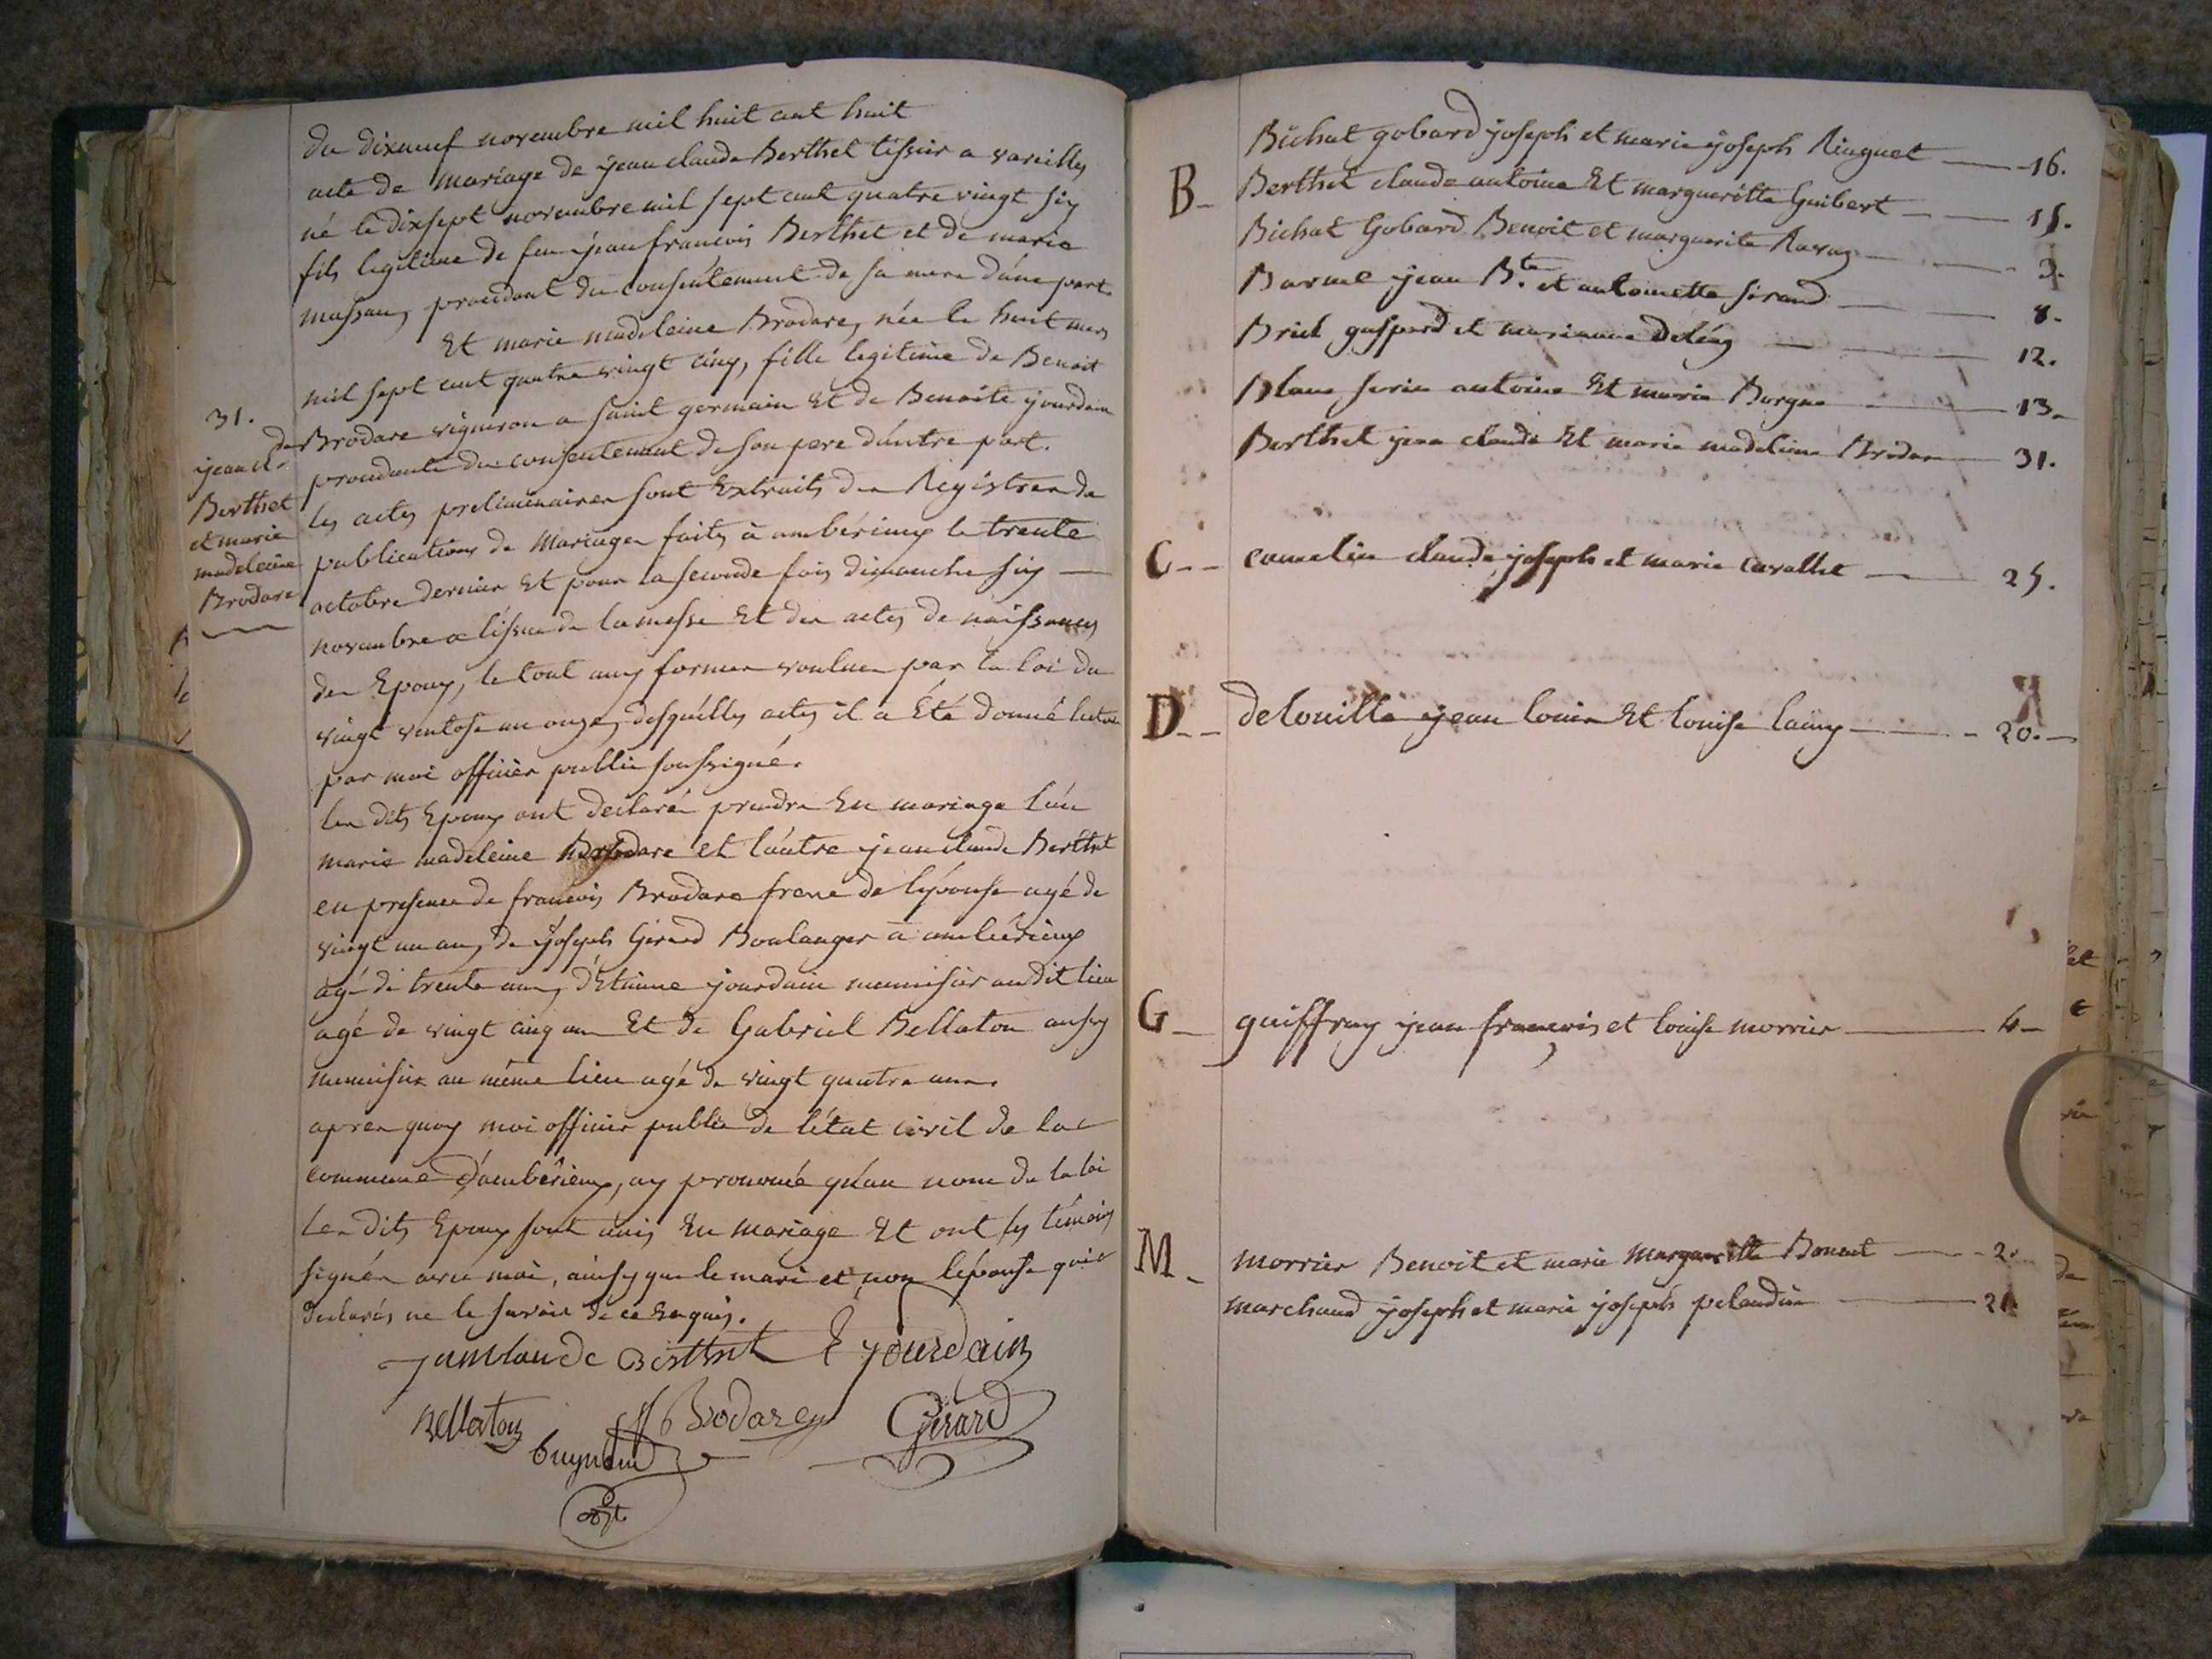 du dixneuf novembre mil huit cent huit
acte de mariage de jean claude Berthet tissier a vareilles
né le dixsept novembre mil sept cent quatre vingt six
fils legitime de feu jean francois Berthet et de marie
massau, procedant du consentement de sa mere d'une part.
Et marie madeleine Brodare, née le huit mars
mil sept cent quatre vingt cinq, fille legitime de Benoit
Brodare vigneron a saint germain Et de Benoite jourdain
procedante du consentement de son pere d'autre part.
les actes preliminaires sont Extraits des Registres de
publications de Mariages faites à ambérieux le trente
octobre dernier Et pour la seconde fois dimanche six
novembre a l'issue de la messe Et des actes de naissances
des Epoux, le tout aux formes voulues par la loi du
vingt ventose an onze, desquelles actes il a Eté donné lecture
par moi officier public soussigné.
les dits Epoux ont declaré prendre En mariage l'un
marie madeleine Brodare et l'autre jean claude Berthet
en presence de francois Brodare frere de l'épouse agé de
vingt un ans, de joseph Girard Boulanger à ambérieux
agé de trente ans, d'Etienne jourdain menuisier au dit lieu
agé de vingt cinq ans Et de Gabriel Bellaton aussy
menuisier au même lieu agé de vingt quatre ans.
apres quoy moi officier public de l'état civil de la
commune d'ambérieux, ay prononcé qu'au nom de la loi
les dits Epoux sont unis En mariage Et ont les témoins
signés avec moi, ainsy que le mari et non l'épouse qui a
declarés ne le savoir de ce Enquis.
jean claude Berthet E jourdain
Bellaton f Brodare Girard
31.
jean cl.de
Berthet
et marie
madeleine
Brodare
B- Bichat gobard joseph et marie joseph Ringuet 16.
Berthet claude antoine Et margueritte Guibert 15.
Bichat Gobard Benoit et marguerite Ravaz 3.
Barme jean B.te et antoinette sirand 8.
Briel gaspard et marianne 12.
Blanc antoine Et marie Borgne 13.
Berthet jean claude Et marie madeleine Brodare 31.
C-- camelin claude joseph et marie 25.
D-- delouille jean louis Et louise 20.
G- guiffray jean françois et louise morrier 4
M- morrier Benoit et marie margueritte Bonnet 2.
marchand joseph et marie joseph pelaudin